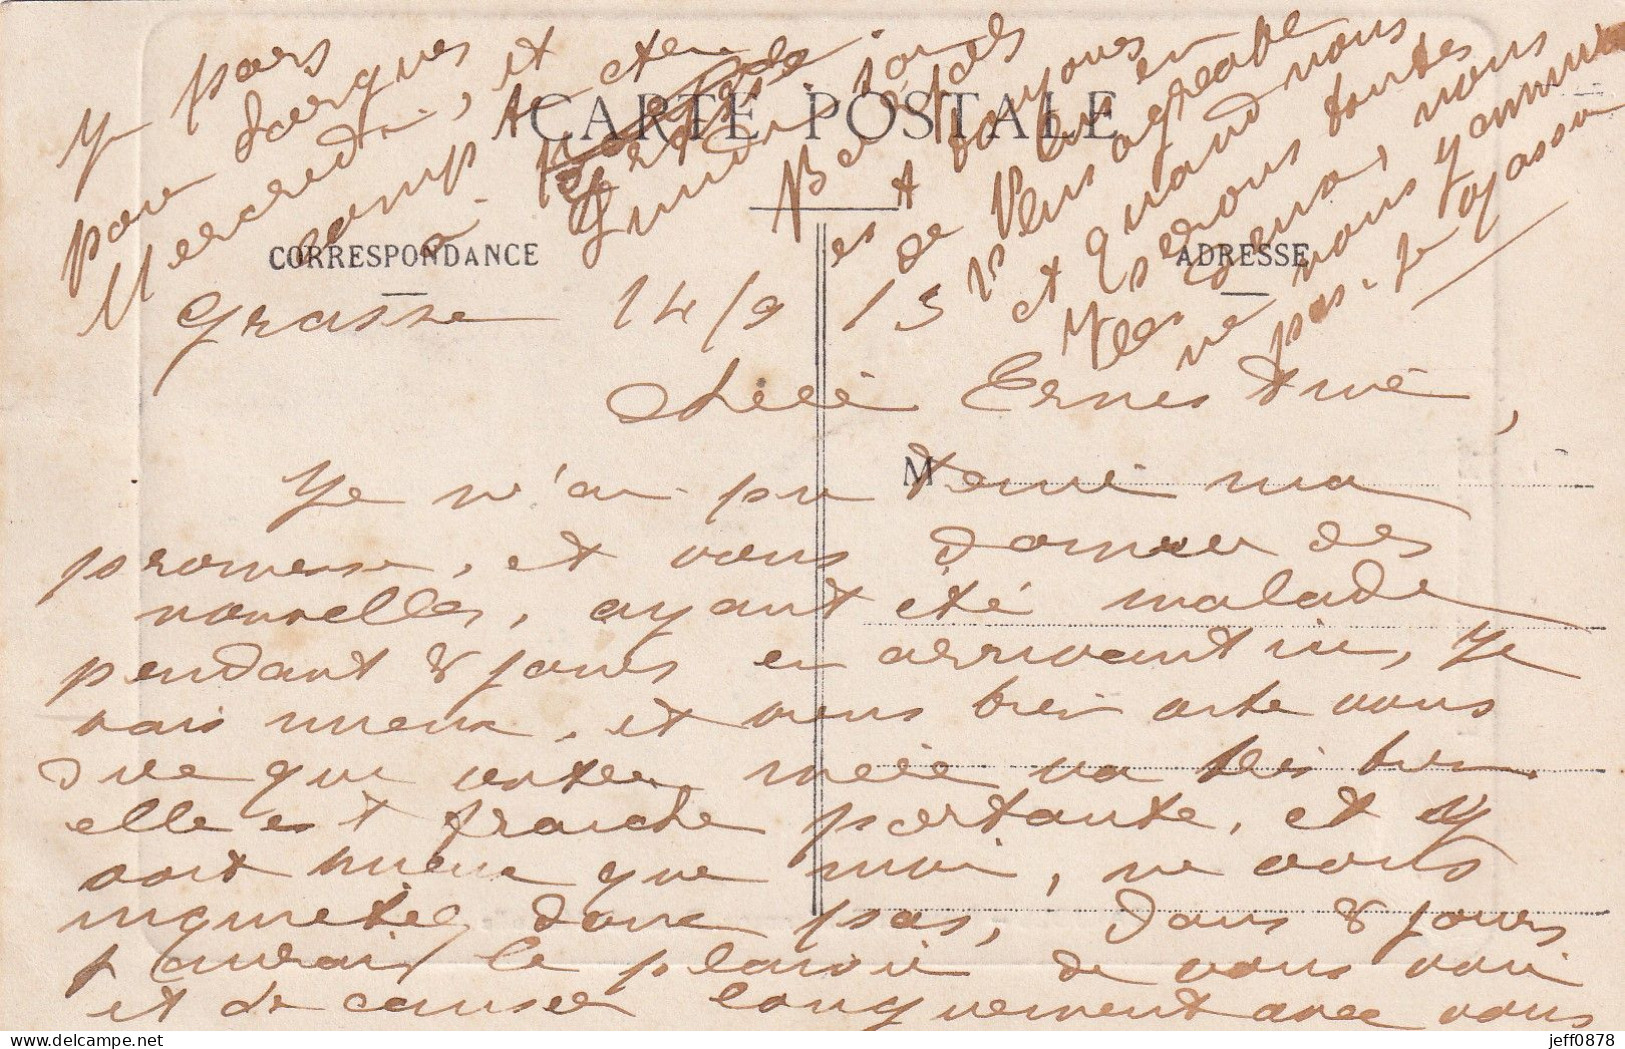 CARTE POSTALE
CORRESPONDANCE
ADRESSE
Grasse 14/9 13
Chère Ernestine,
M
Je n'ai pu tenir ma
promesse, et vous donner des
nouvelles, ayant été malade
pendant 8 jours en arrivant ici, Je
vais mieux, et viens bien vite vous
dire que votre mère va très bien.
elle est fraîche portante, et y
voit mieux que moi, ne vous
inquietez donc pas, dans 8 jours
j'aurais le plaisir de vous voir
et de causer longuement avec vous
Je pars
pour Lorgues
Mercredi, et
compte
à
Lundi
Baisers
et
toujours
de
et quand nous
serons toutes
Les
nous
ne nous
pas. Je
jeff0878